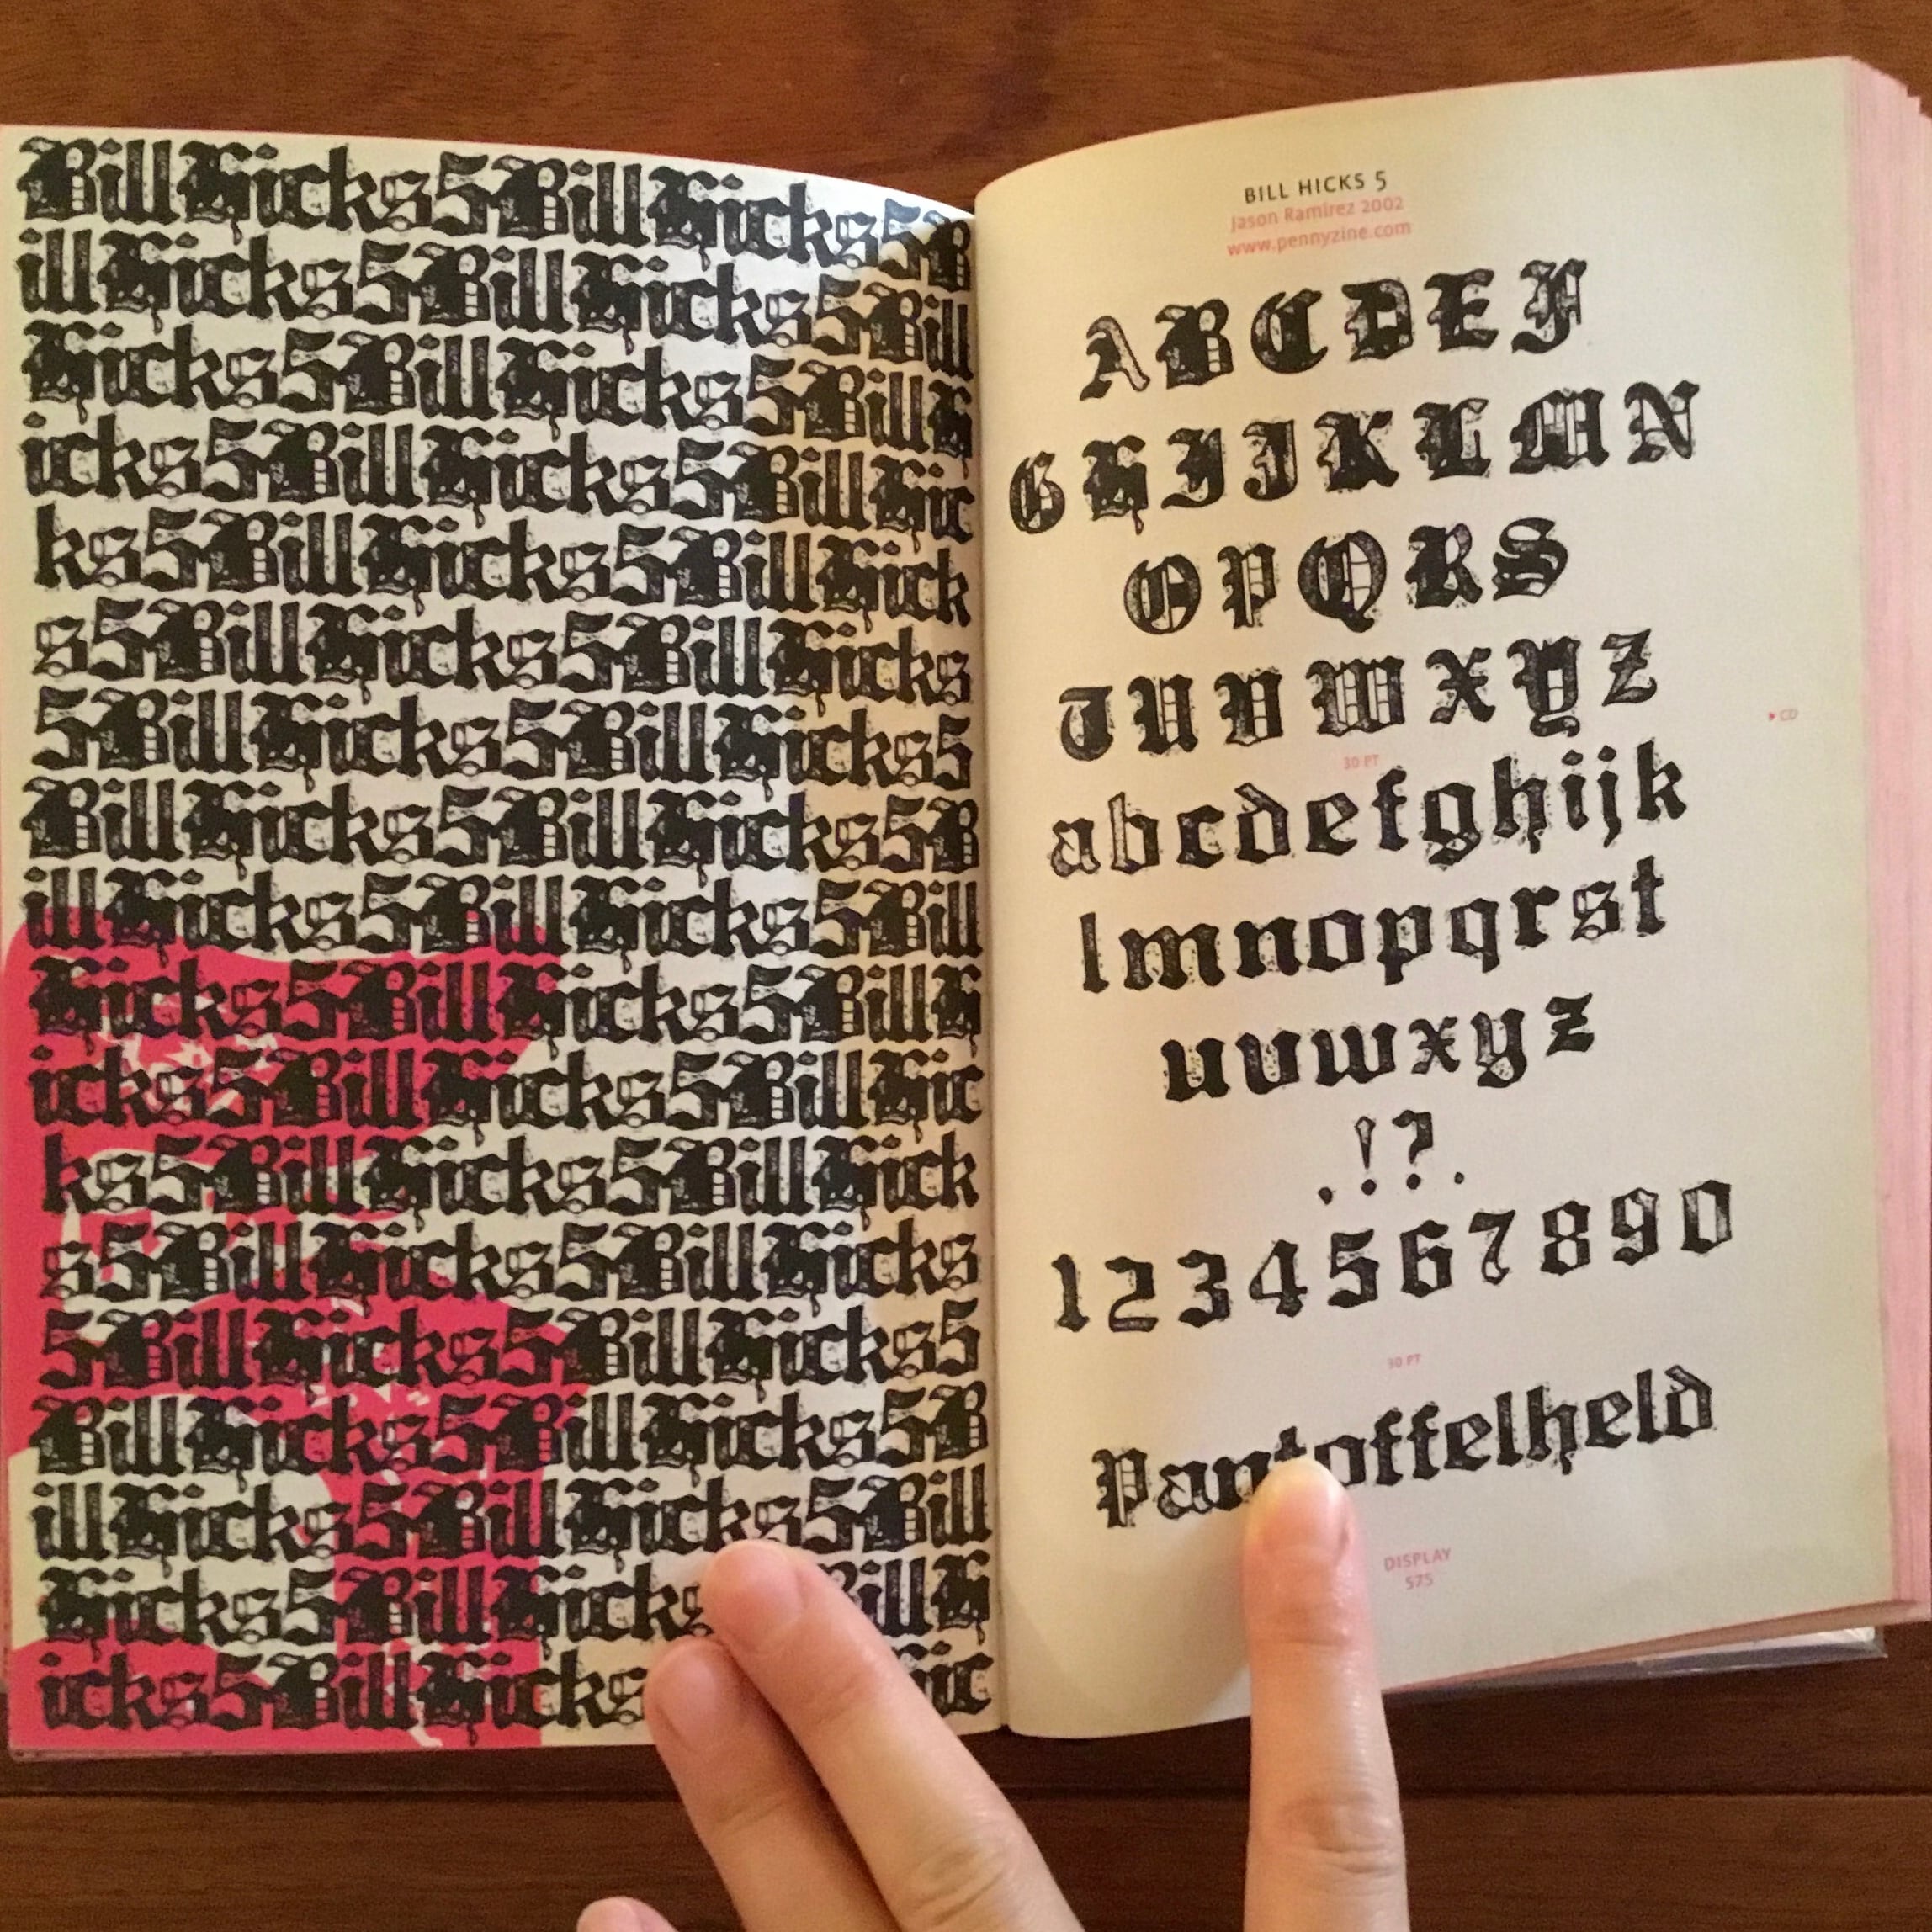 BillHicks5BillHicks5B
illHicks5BillHicks5Bill
Hicks5BillHicks5BillH
icks5BillHicks5BillHic
ks5BillHicks5BillHick
s5BillHicks5BillHicks
5BillHicks5BillHicks5
BillHicks5BillHicks5B
illHicks5BillHicks5Bill
Hicks5BillHicks5BillH
icks5BillHicks5BillHic
ks5BillHicks5BillHick
s5BillHicks5BillHicks
5BillHicks5BillHicks5
BillHicks5BillHicks5B
illHicks5BillHicks5Bill
Hicks5BillHicks BillH
icks5BillHicks Hic
BILL HICKS 5
Jason Ramirez 2002
www.pennyzine.com
A B C D E F
G H I J K L M N
O P Q R S
T U V W X Y Z
30 PT
a b c d e f g h i j k
l m n o p q r s t
u v w x y z
, ! ? .
1 2 3 4 5 6 7 8 9 0
30 PT
Pantoffelheld
DISPLAY
575
CD